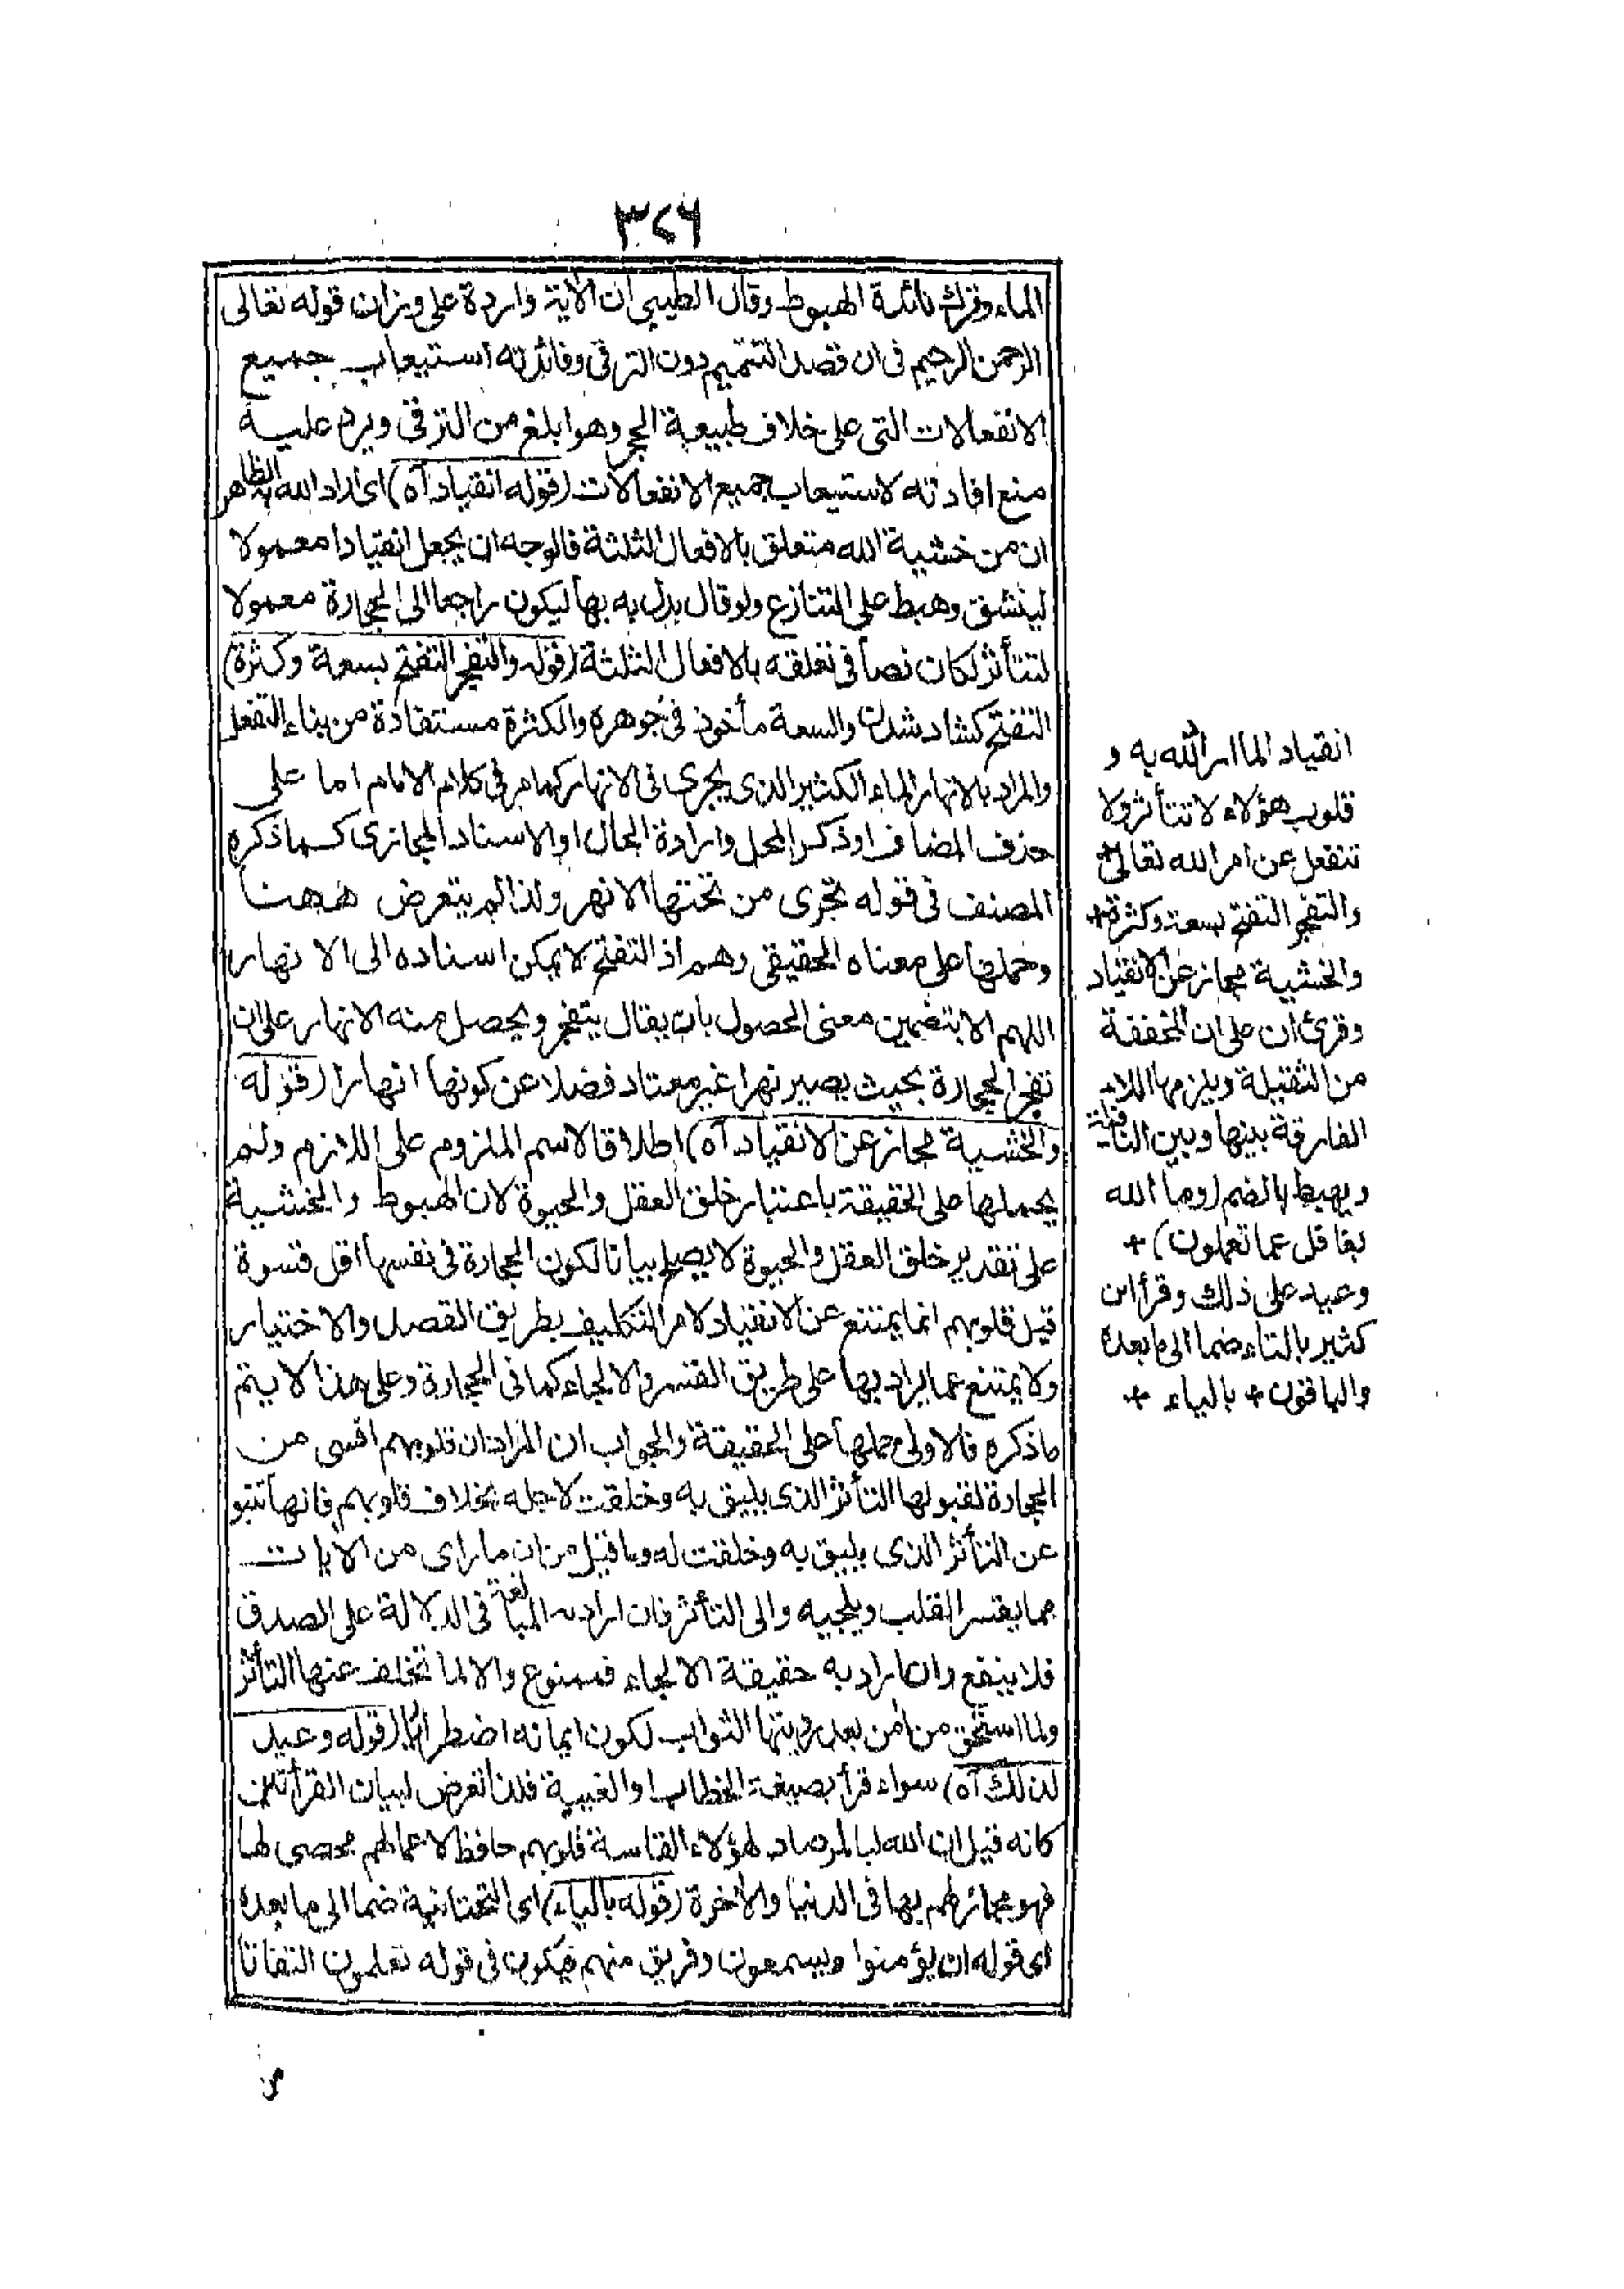 ٣٢٦
الماء وفرك فائدة الهبوط وقال الطيبي ان الآية واردة على وزان قوله تعالى
الرحمن الرحيم في ان قصد التتميم دون الترقي وفائدته استيعاب جميع
الانفعالات التي على خلاف طبيعة الحجر وهو ابلغ من الترقي ويرد عليه
منع افادته لاستيعاب جميع الانفعالات (قوله انقياد آه) اى اراد الله به الظاهر
ان من خشية الله متعلق بالافعال الثلثة فالوجه ان يجعل انقيادا معمولا
لينشق وهبط على التنازع ولو قال بدل به بها ليكون راجعا الى الحجارة معمولا
لتتأثر لكان نصا في تعلقه بالافعال الثلثة (قوله والتفجر التفتح بسعة وكثرة)
التفتح كشاد شدن والسعة مأخوذ في جوهره والكثرة مستفادة من بناء التفعل
والمراد بالانهار الماء الكثير الذى يجرى فى الانهار كما مر فى كلام الامام اما على
حذف المضاف او ذكر المحل وارادة الحال او الاسناد المجازى كما ذكره
المصنف فى قوله تجرى من تحتها الانهر ولذا لم يتعرض ههنا
وحملها على معناه الحقيقى وهم اذ التفتح لا يمكن اسناده الى الانهار
اللهم الا بتضمين معنى الحصول بان يقال يتفجر ويحصل منه الانهار على ان
تفجر الحجارة بحيث يصير نهرا غير معتاد فضلا عن كونها انهارا (قوله
والخشية مجاز عن الانقياد آه) اطلاقا لاسم الملزوم على اللازم ولم
يحملها على الحقيقة باعتبار خلق العقل والحيوة لان الهبوط والخشية
على تقدير خلق العقل والحيوة لا يصلح بيانا لكون الحجارة فى نفسها اقل قسوة
قيل قلوبهم انما يمتنع عن الانقياد لامر التكليف بطريق القصد والاختيار
ولا يمتنع عما يراد بها على طريق القسر والالجاء كما فى الحجارة وعلى هذا لا يتم
ما ذكره فالاولى حملها على الحقيقة والجواب ان المراد ان قلوبهم اقسى من
الحجارة لقبولها التأثر الذى يليق به وخلقت لاجله بخلاف قلوبهم فانها تنبو
عن التأثر الذى يليق به وخلقت له وما قيل من ان ما راى من الآيات
مما يقسر القلب ويلجيه والى التأثر فان اراد به المبالغة فى الدلالة على الصدق
فلا ينفع وان اراد به حقيقة الالجاء فممنوع والا لما تخلف عنها التأثر
ولما استحق من آمن بعد رويتها الثواب لكون ايمانه اضطراريا (قوله وعيد
لذلك آه) سواء قرأ بصيغة الخطاب او الغيبة فلذا تعرض لبيان القرأتين
كانه قيل ان الله لبالمرصاد لهؤلاء القاسة قلوبهم حافظ لاعمالهم محصى لها
فهو مجازيهم بها فى الدنيا والآخرة (قوله بالياء) اى التحتانية ضما الى ما بعده
اى قوله ان يؤمنوا ويسمعون وفريق منهم فيكون فى قوله تعلمون التفاتا
انقياد الما امر الله به و
قلوب هؤلاء لا تتأثر ولا
تنفعل عن امر الله تعالى +
والتفجر التفتح بسعة وكثرة +
والخشية مجاز عن الانقياد
وقرئ ان على ان المخففة
من الثقيلة ويلزمها اللام
الفارقة بينها وبين النافية
ويهبط بالضم (وما الله
بغافل عما تعملون) +
وعيد على ذلك وقرأ ابن
كثير بالتاء ضما الى ما بعده
والباقون + بالياء +